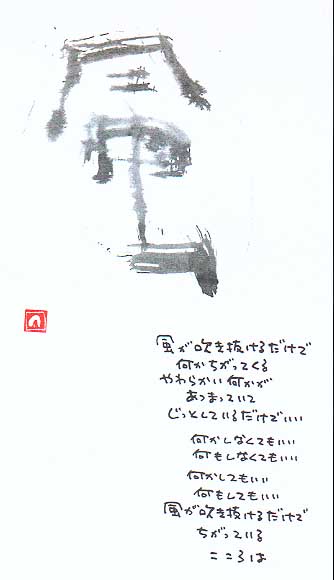 風が吹き抜けるだけで
何かちがってくる
やわらかい何かが
あつまっていて
じっとしているだけでいい
何かしなくてもいい
何もしなくてもいい
何かしてもいい
何もしてもいい
風が吹き抜けるだけで
ちがっている
こころは